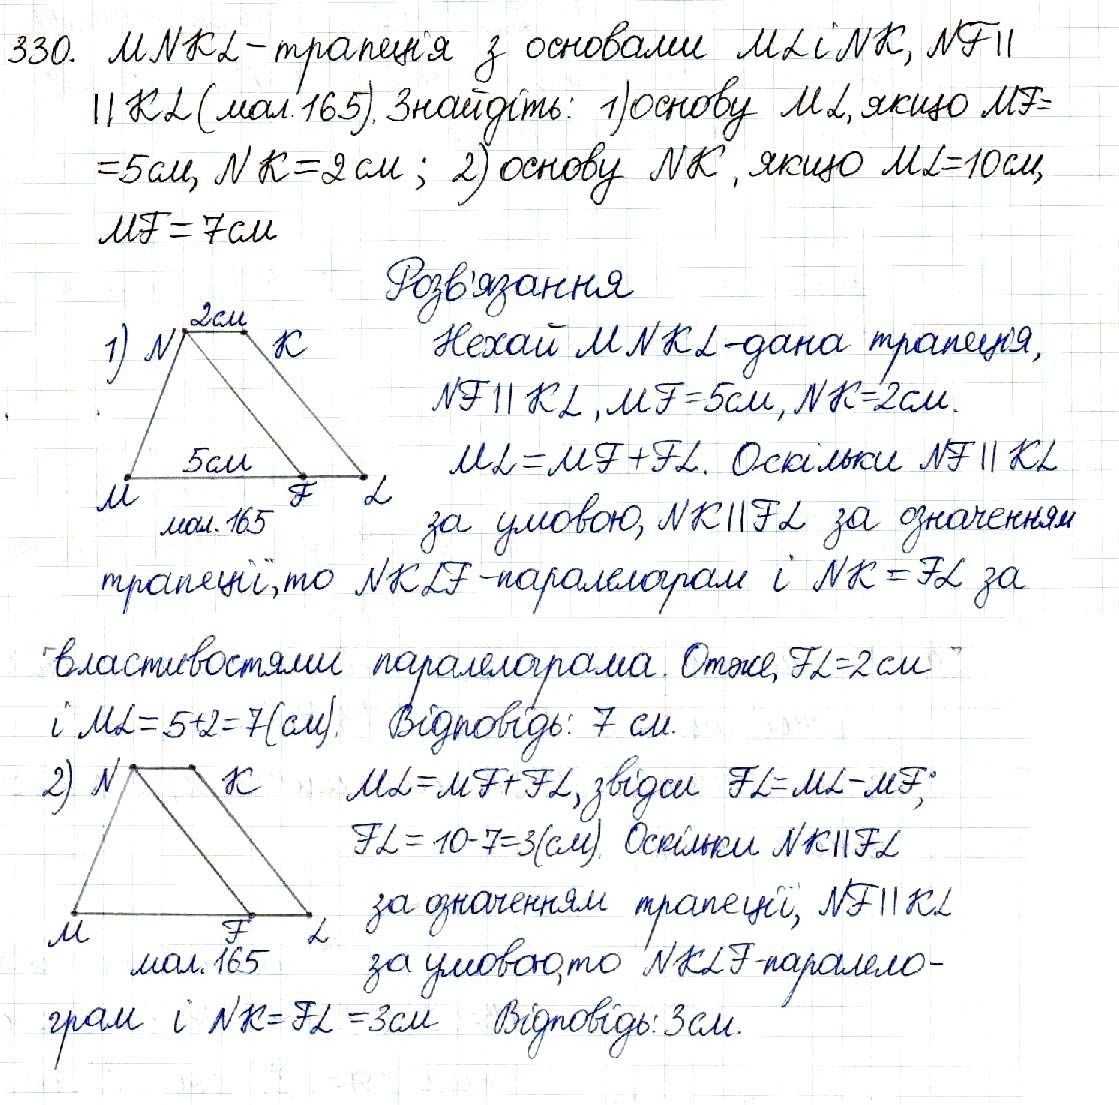 330. MNKL-трапеція з основами ML і NK, NF||
||KL (мал.165). Знайдіть: 1) основу ML, якщо MF=
=5см, NK=2см; 2) основу NK, якщо ML=10см,
MF=7см
Розв'язання
1) N 2см K
5см
M F L
мал.165
Нехай MNKL-дана трапеція,
NF||KL, MF=5см, NK=2см.
ML=MF+FL. Оскільки NF||KL
за умовою, NK||FL за означенням
трапеції, то NKLF-паралелограм і NK=FL за
властивостями паралелограма. Отже, FL=2см
і ML=5+2=7(см). Відповідь: 7 см.
2) N K
M F L
мал.165
ML=MF+FL, звідси FL=ML-MF;
FL=10-7=3(см). Оскільки NK||FL
за означенням трапеції, NF||KL
за умовою, то NKLF-паралело-
грам і NK=FL=3см Відповідь: 3см.